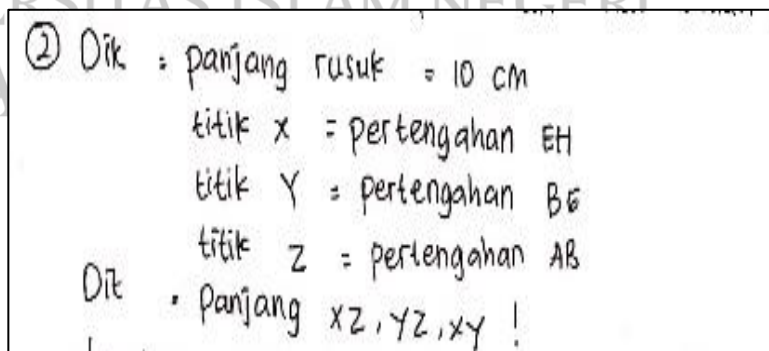 RSITAS ISLAM NEGERI
② Dik : panjang rusuk = 10 cm
titik X = pertengahan EH
titik Y = pertengahan BG
titik Z = pertengahan AB
Dit . Panjang XZ, YZ, XY !